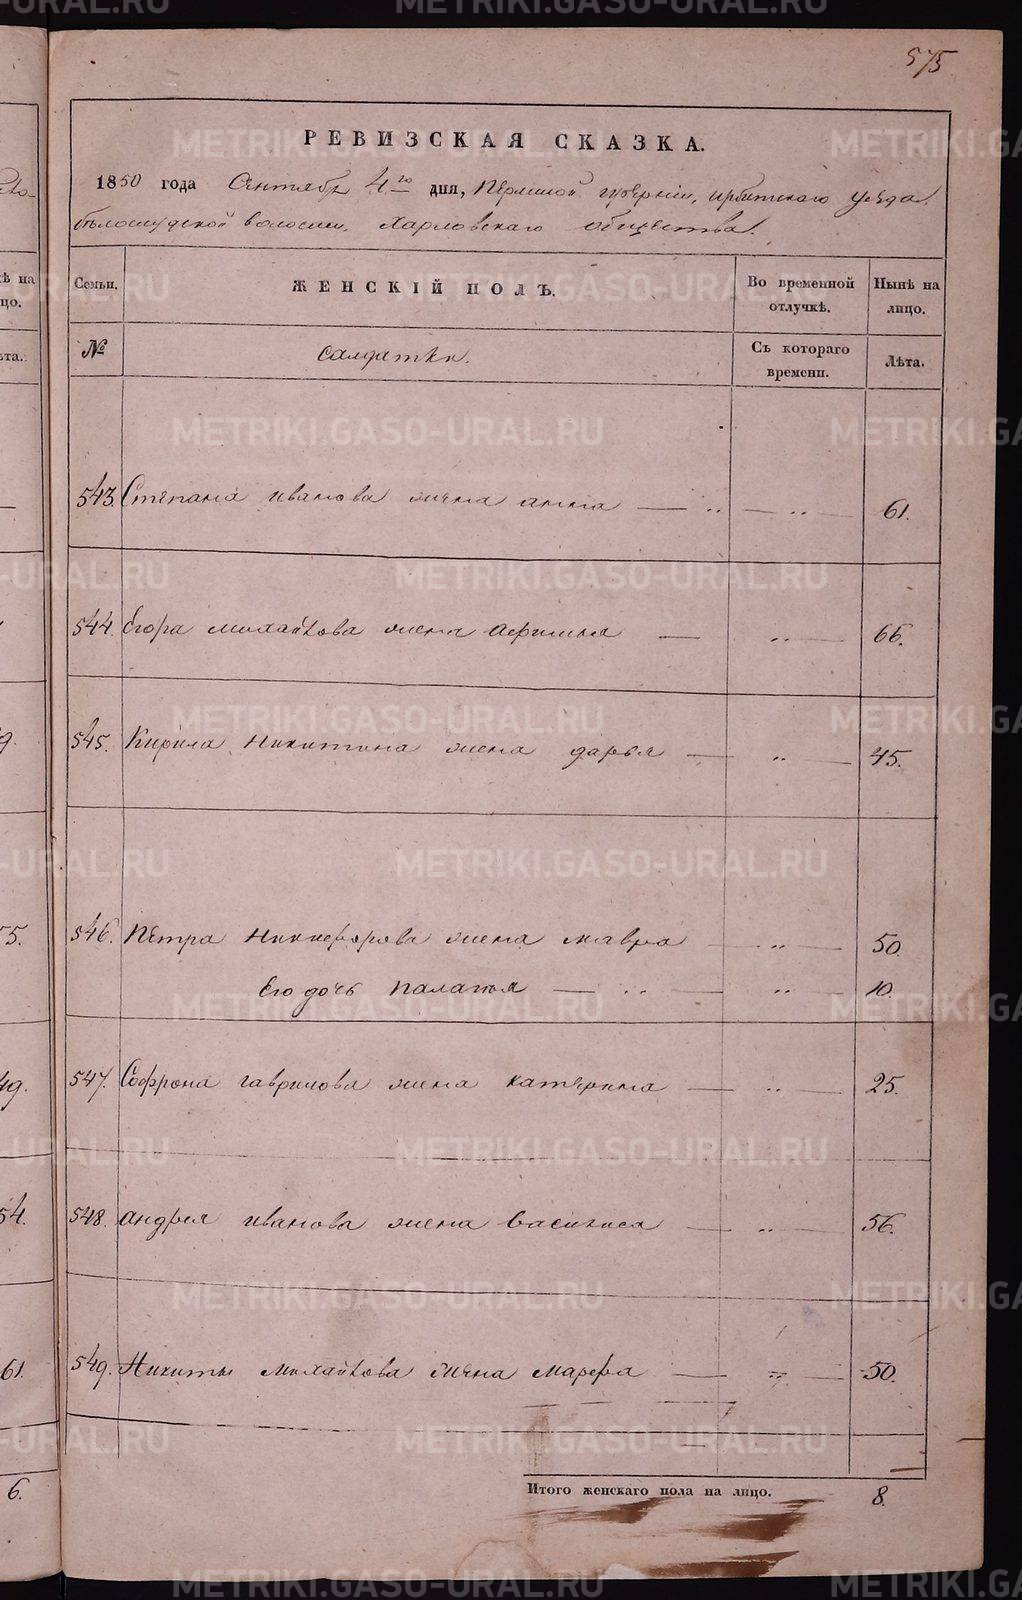 575
РЕВИЗСКАЯ СКАЗКА.
1850 года Сентября 4го дня, Пермской губернии, ирбитского уезда
белослудской волости, Харловскаго общества.
Семьи. ЖЕНСКІЙ ПОЛЪ. Во временной отлучкѣ. Нынѣ на лицо.
№ солдатки. Съ котораго времени. Лѣта.
543. Степана иванова жена анна — „ — „ — 61.
544. Егора михайлова жена Афимья — „ — 66.
545. Кирила Никитина жена дарья — „ — 45.
546. Петра Никифорова жена мавра — „ — 50.
Его дочь палагья — „ — „ — 10.
547. Софрона гаврилова жена катерина — „ — 25.
548. андрея иванова жена василиса — „ — 56.
549. Никиты михайлова жена марфа — „ — 50.
Итого женскаго пола на лицо. 8.
55.
49.
54.
61.
6.
METRIKI.GASO-URAL.RU